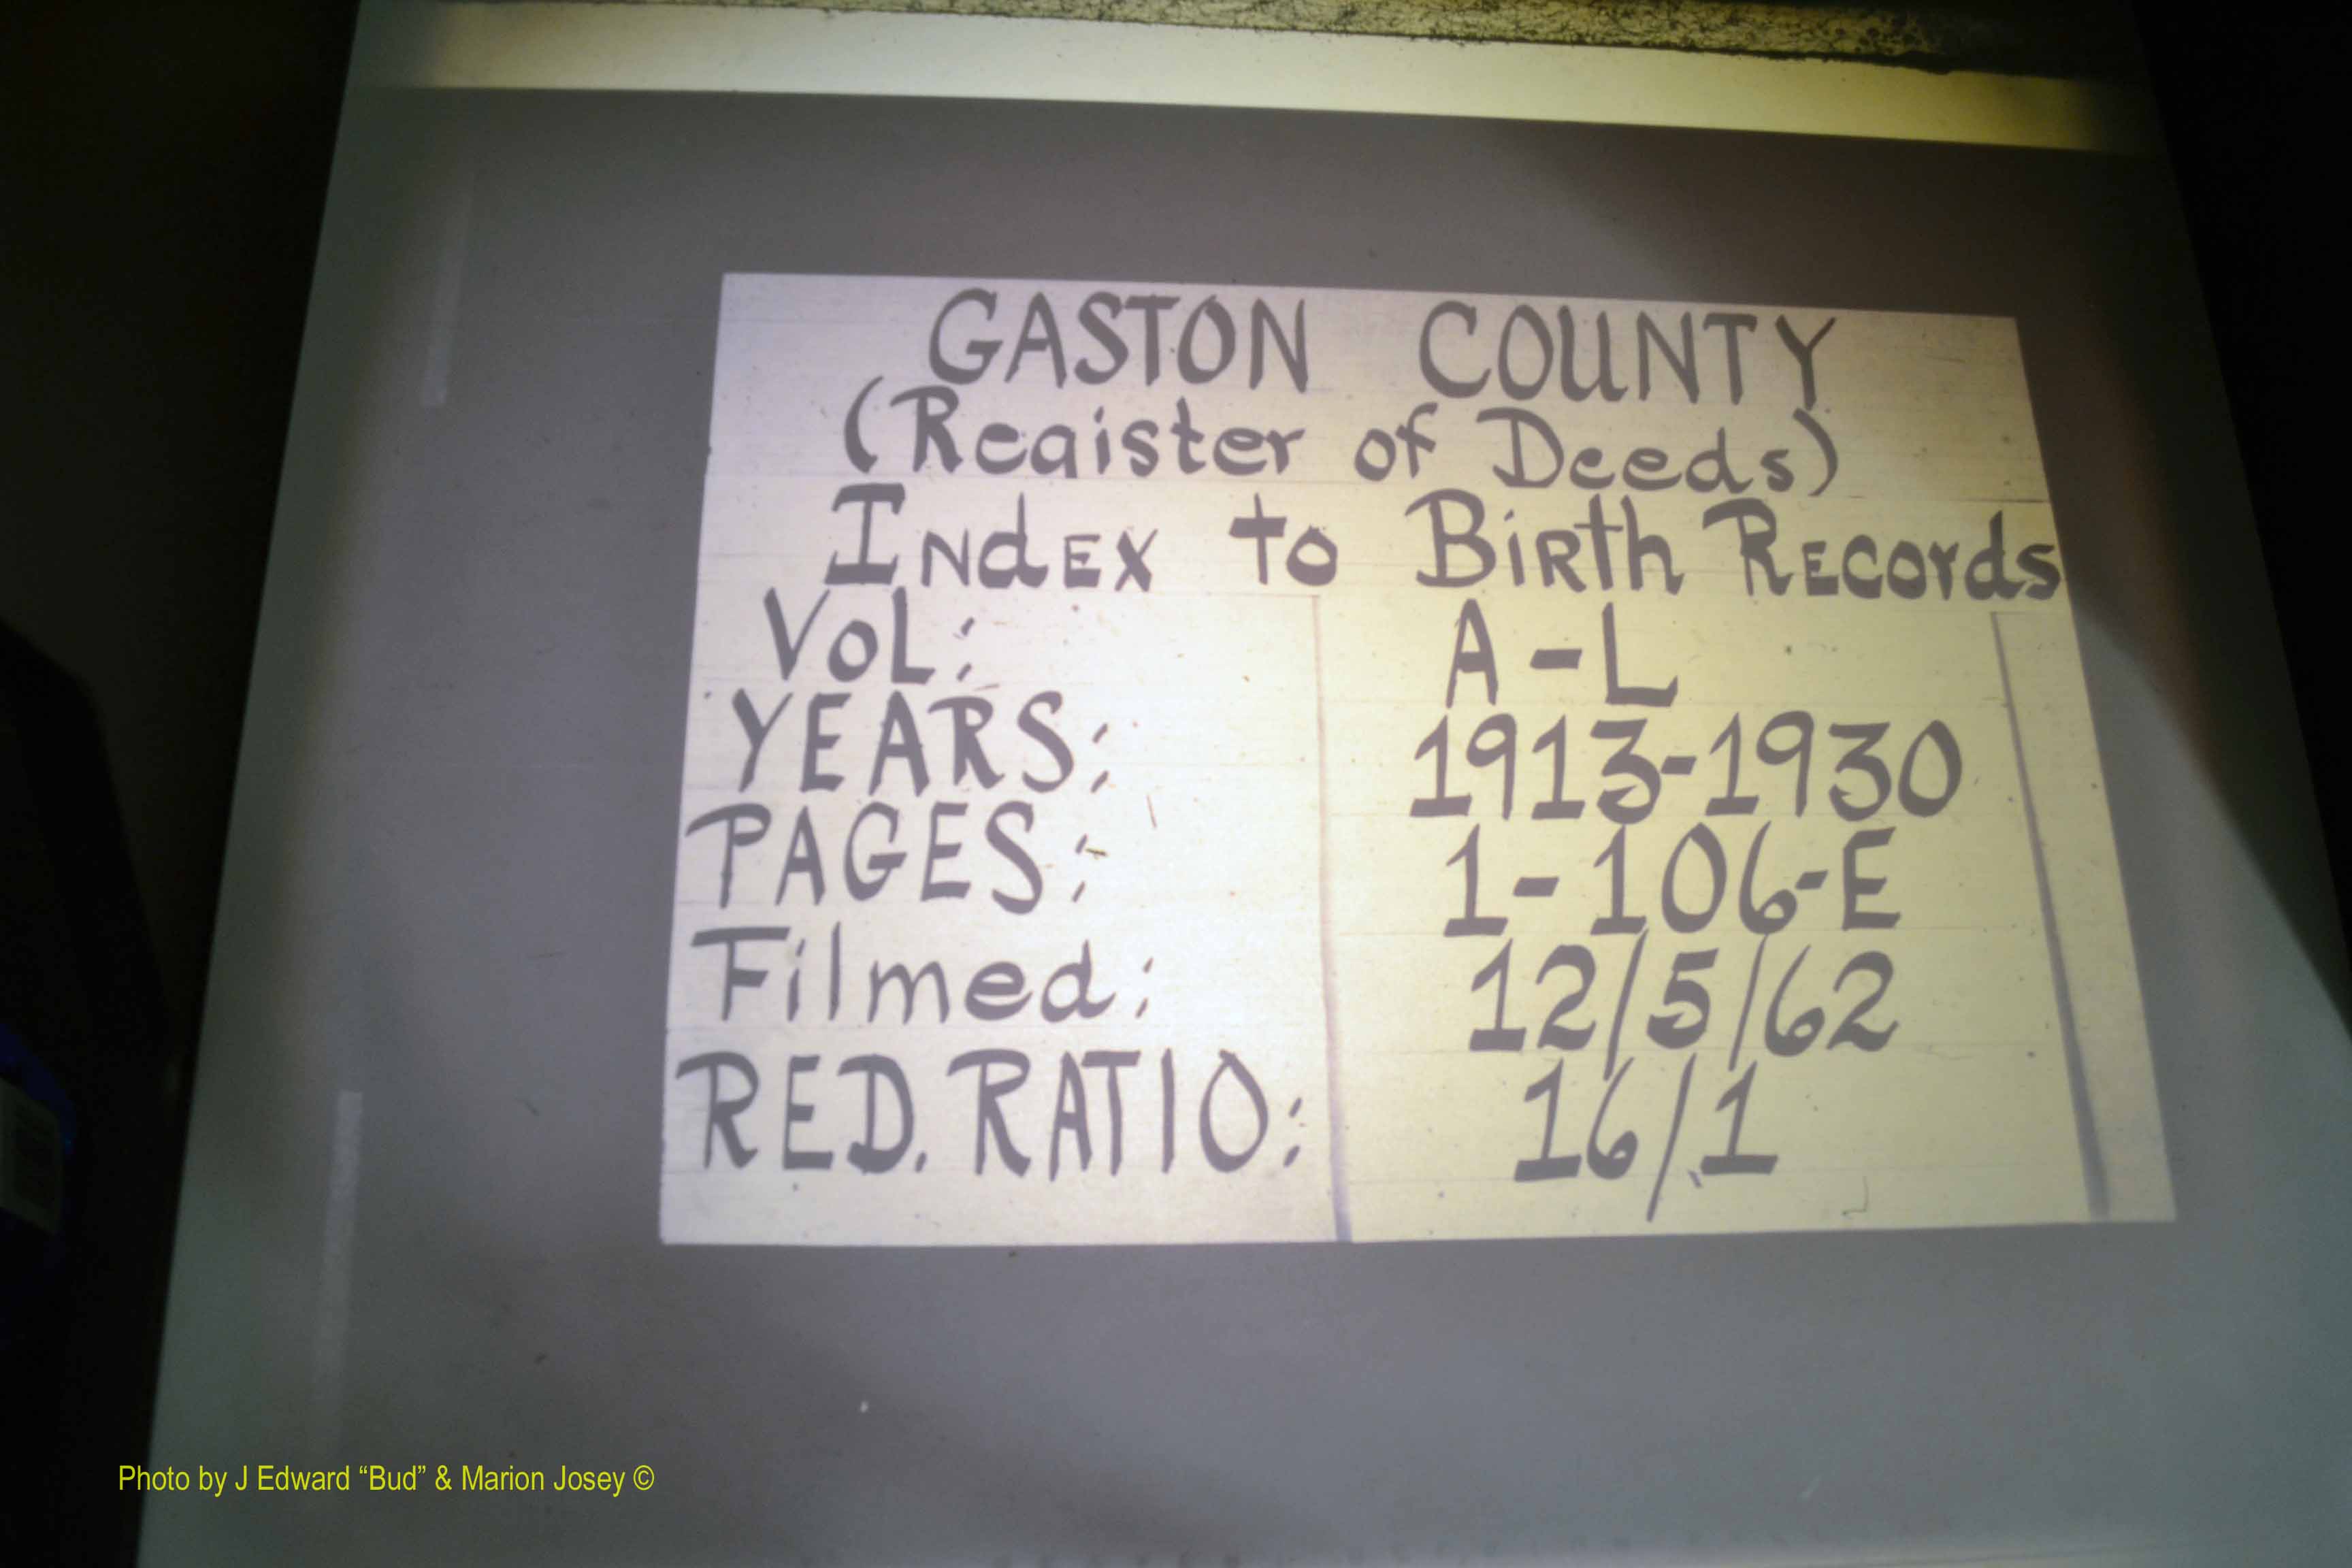 GASTON COUNTY
(Register of Deeds)
INdEX to BiRth RECords
VoL: A-L
YEARS: 1913-1930
PAGES: 1-106-E
Filmed: 12/5/62
RED. RATIO: 16/1
Photo by J Edward “Bud” & Marion Josey ©